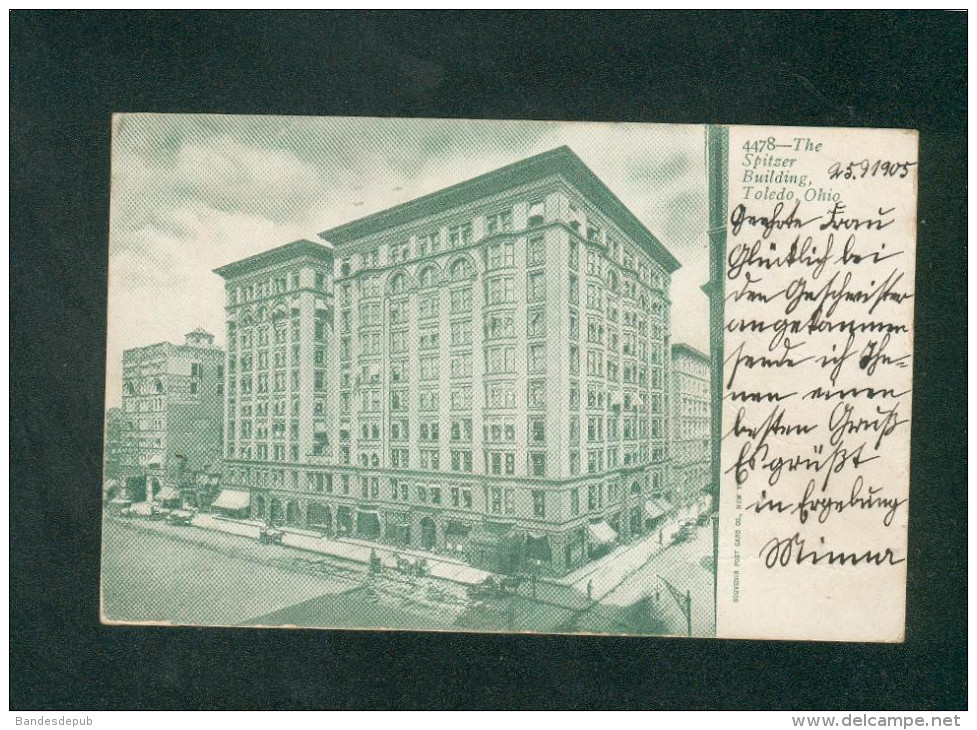 4478—The
Spitzer
Building,
Toledo, Ohio
25.9 1905
Geehrte Frau
Glücklich bei
den Geschwister
angekommen
sende ich Ih=
nen einen
besten Gruß
Es grüßt
in Ergebung
Minna
SOUVENIR POST CARD CO., NEW Y
Bandesdepub
www.delcampe.net